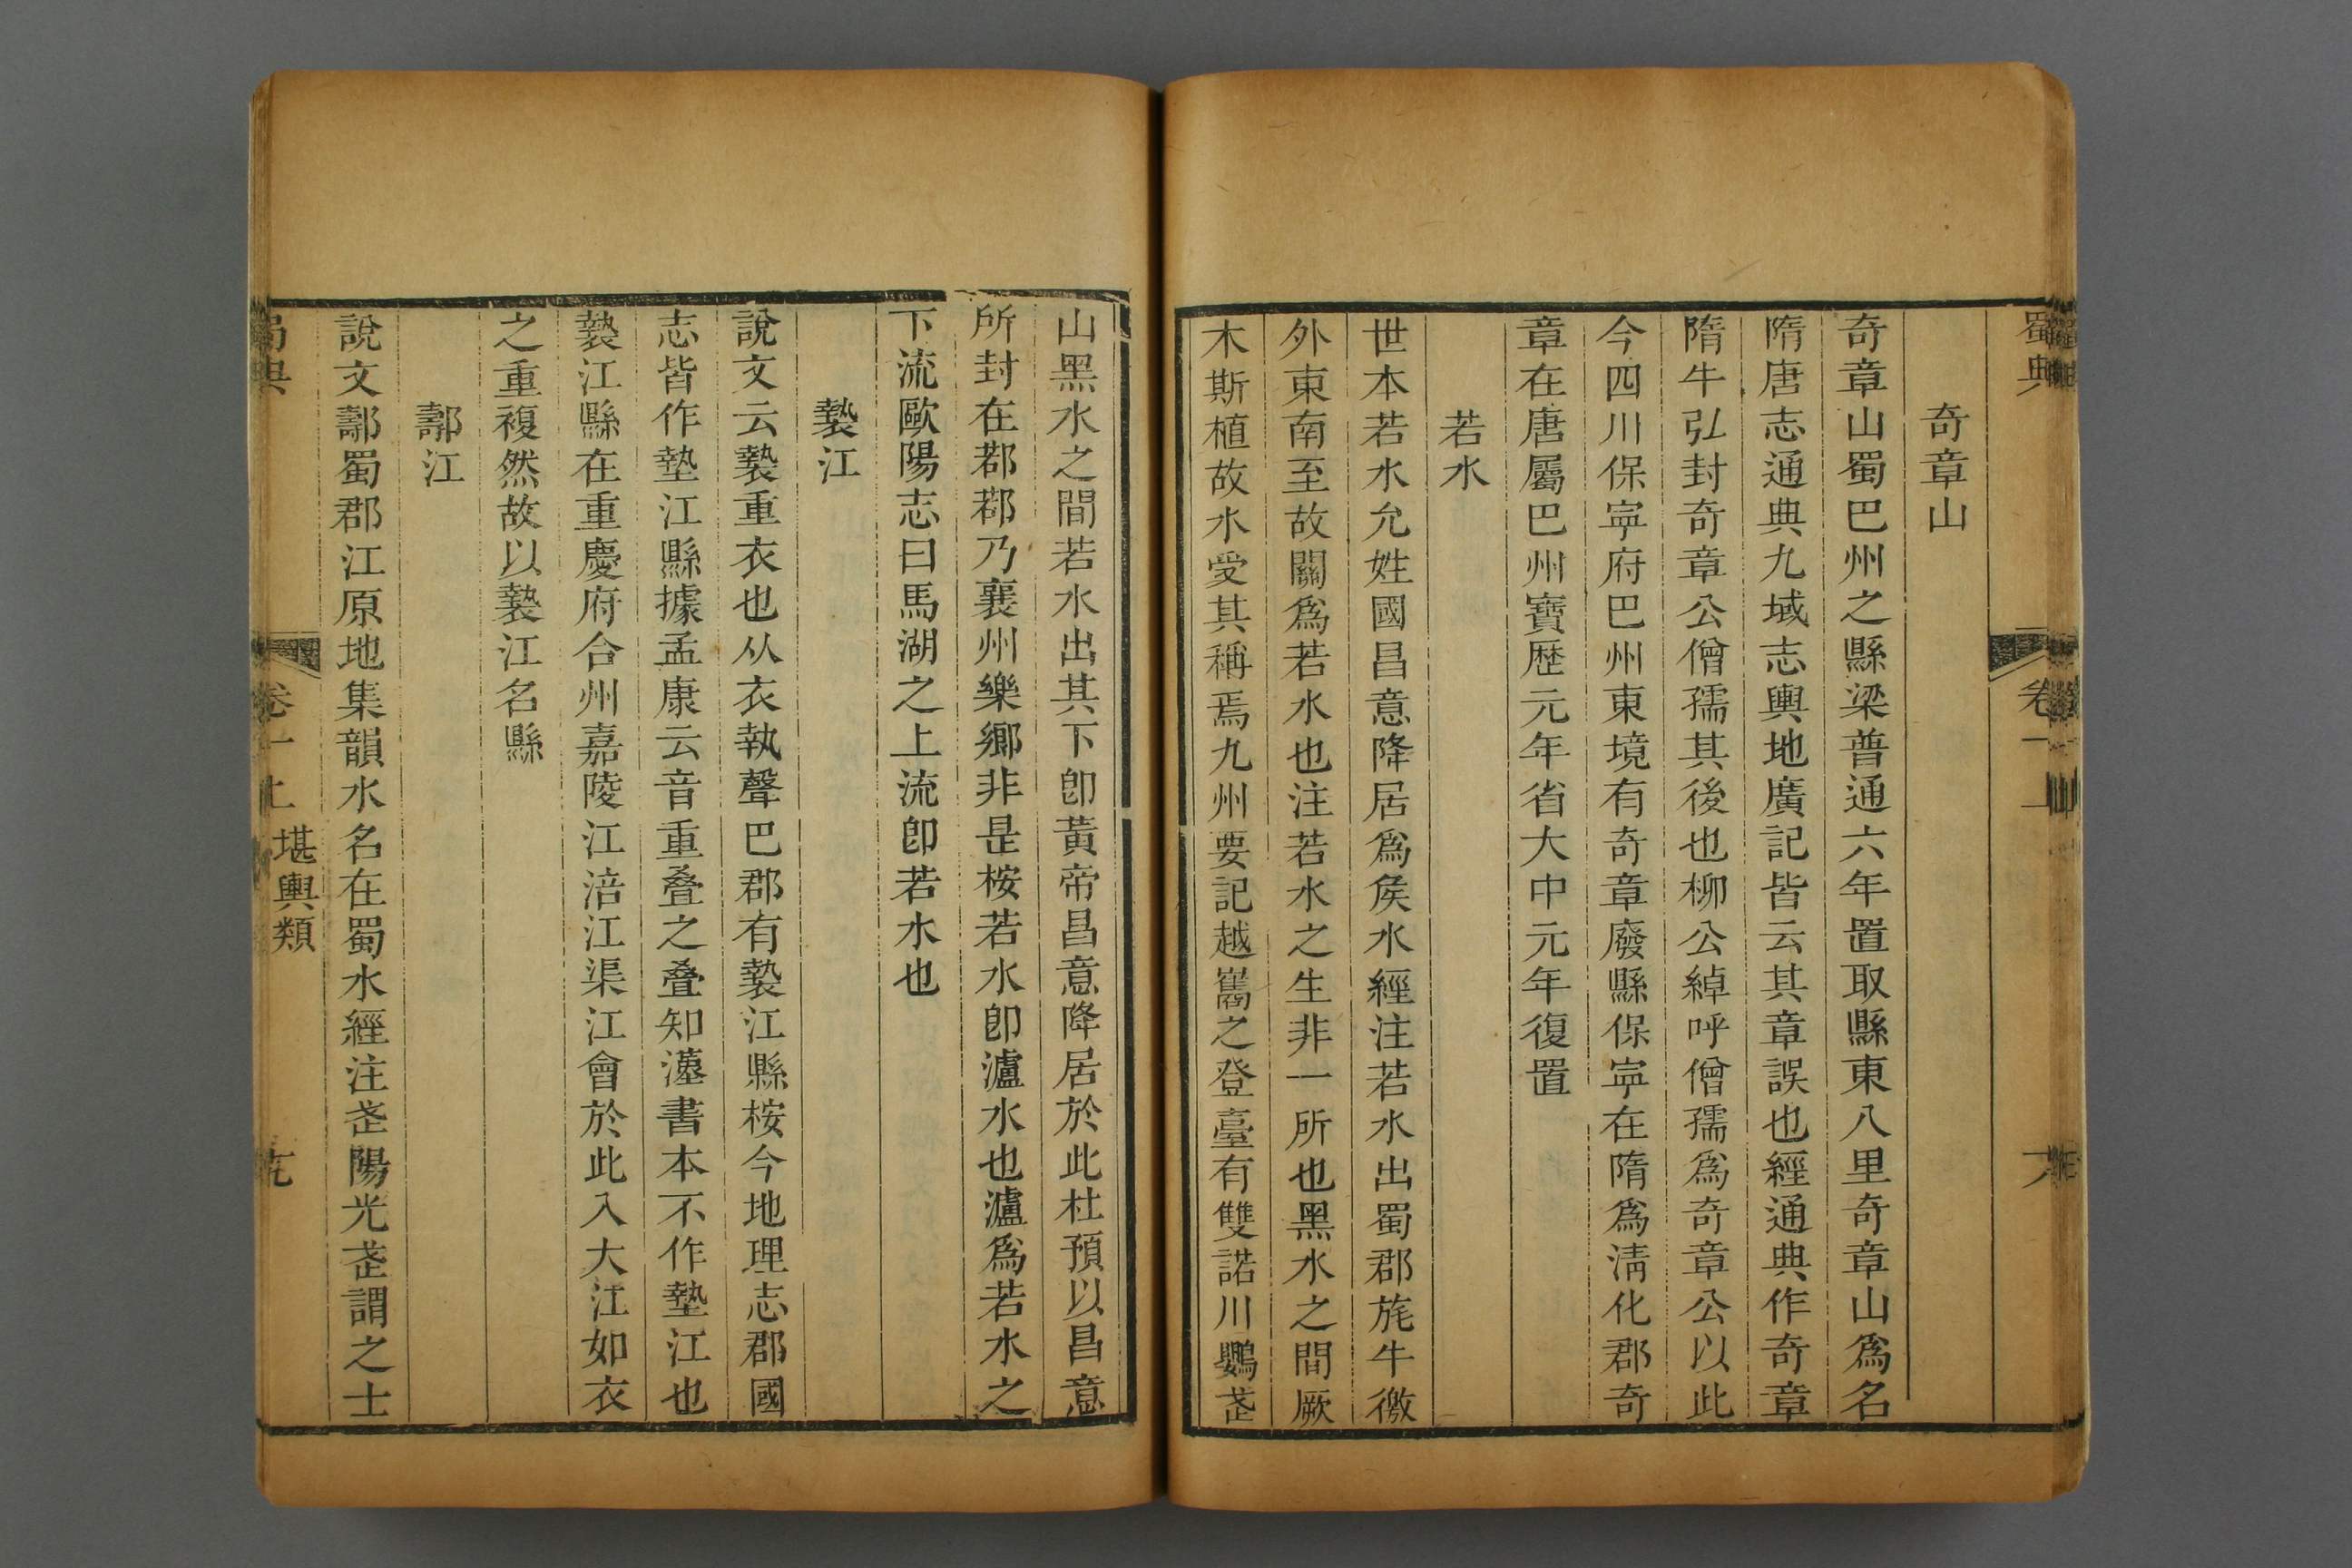 蜀典 卷一上
奇章山
奇章山蜀巴州之縣梁普通六年置取縣東八里奇章山爲名
隋唐志通典九域志輿地廣記皆云其章誤也經通典作奇章
隋牛弘封奇章公僧孺其後也柳公綽呼僧孺爲奇章公以此
今四川保寧府巴州東境有奇章廢縣保寧在隋爲清化郡奇
章在唐屬巴州寶歷元年省大中元年復置
若水
世本若水允姓國昌意降居爲矦水經注若水出蜀郡旄牛徼
外東南至故關爲若水也注若水之生非一所也黑水之間厥
木斯植故水受其稱焉九州要記越巂之登臺有雙諾川鸚䓊
山黑水之間若水出其下卽黃帝昌意降居於此杜預以昌意
所封在鄀鄀乃襄州樂鄉非是桉若水卽瀘水也瀘爲若水之
下流歐陽志曰馬湖之上流卽若水也
褺江
說文云褺重衣也从衣執聲巴郡有褺江縣桉今地理志郡國
志皆作墊江縣據孟康云音重疊之疊知漢書本不作墊江也
褺江縣在重慶府合州嘉陵江涪江渠江會於此入大江如衣
之重複然故以褺江名縣
𨞪江
說文𨞪蜀郡江原地集韻水名在蜀水經注𡴀陽光𡴀謂之士
蜀典 卷一上 堪輿類